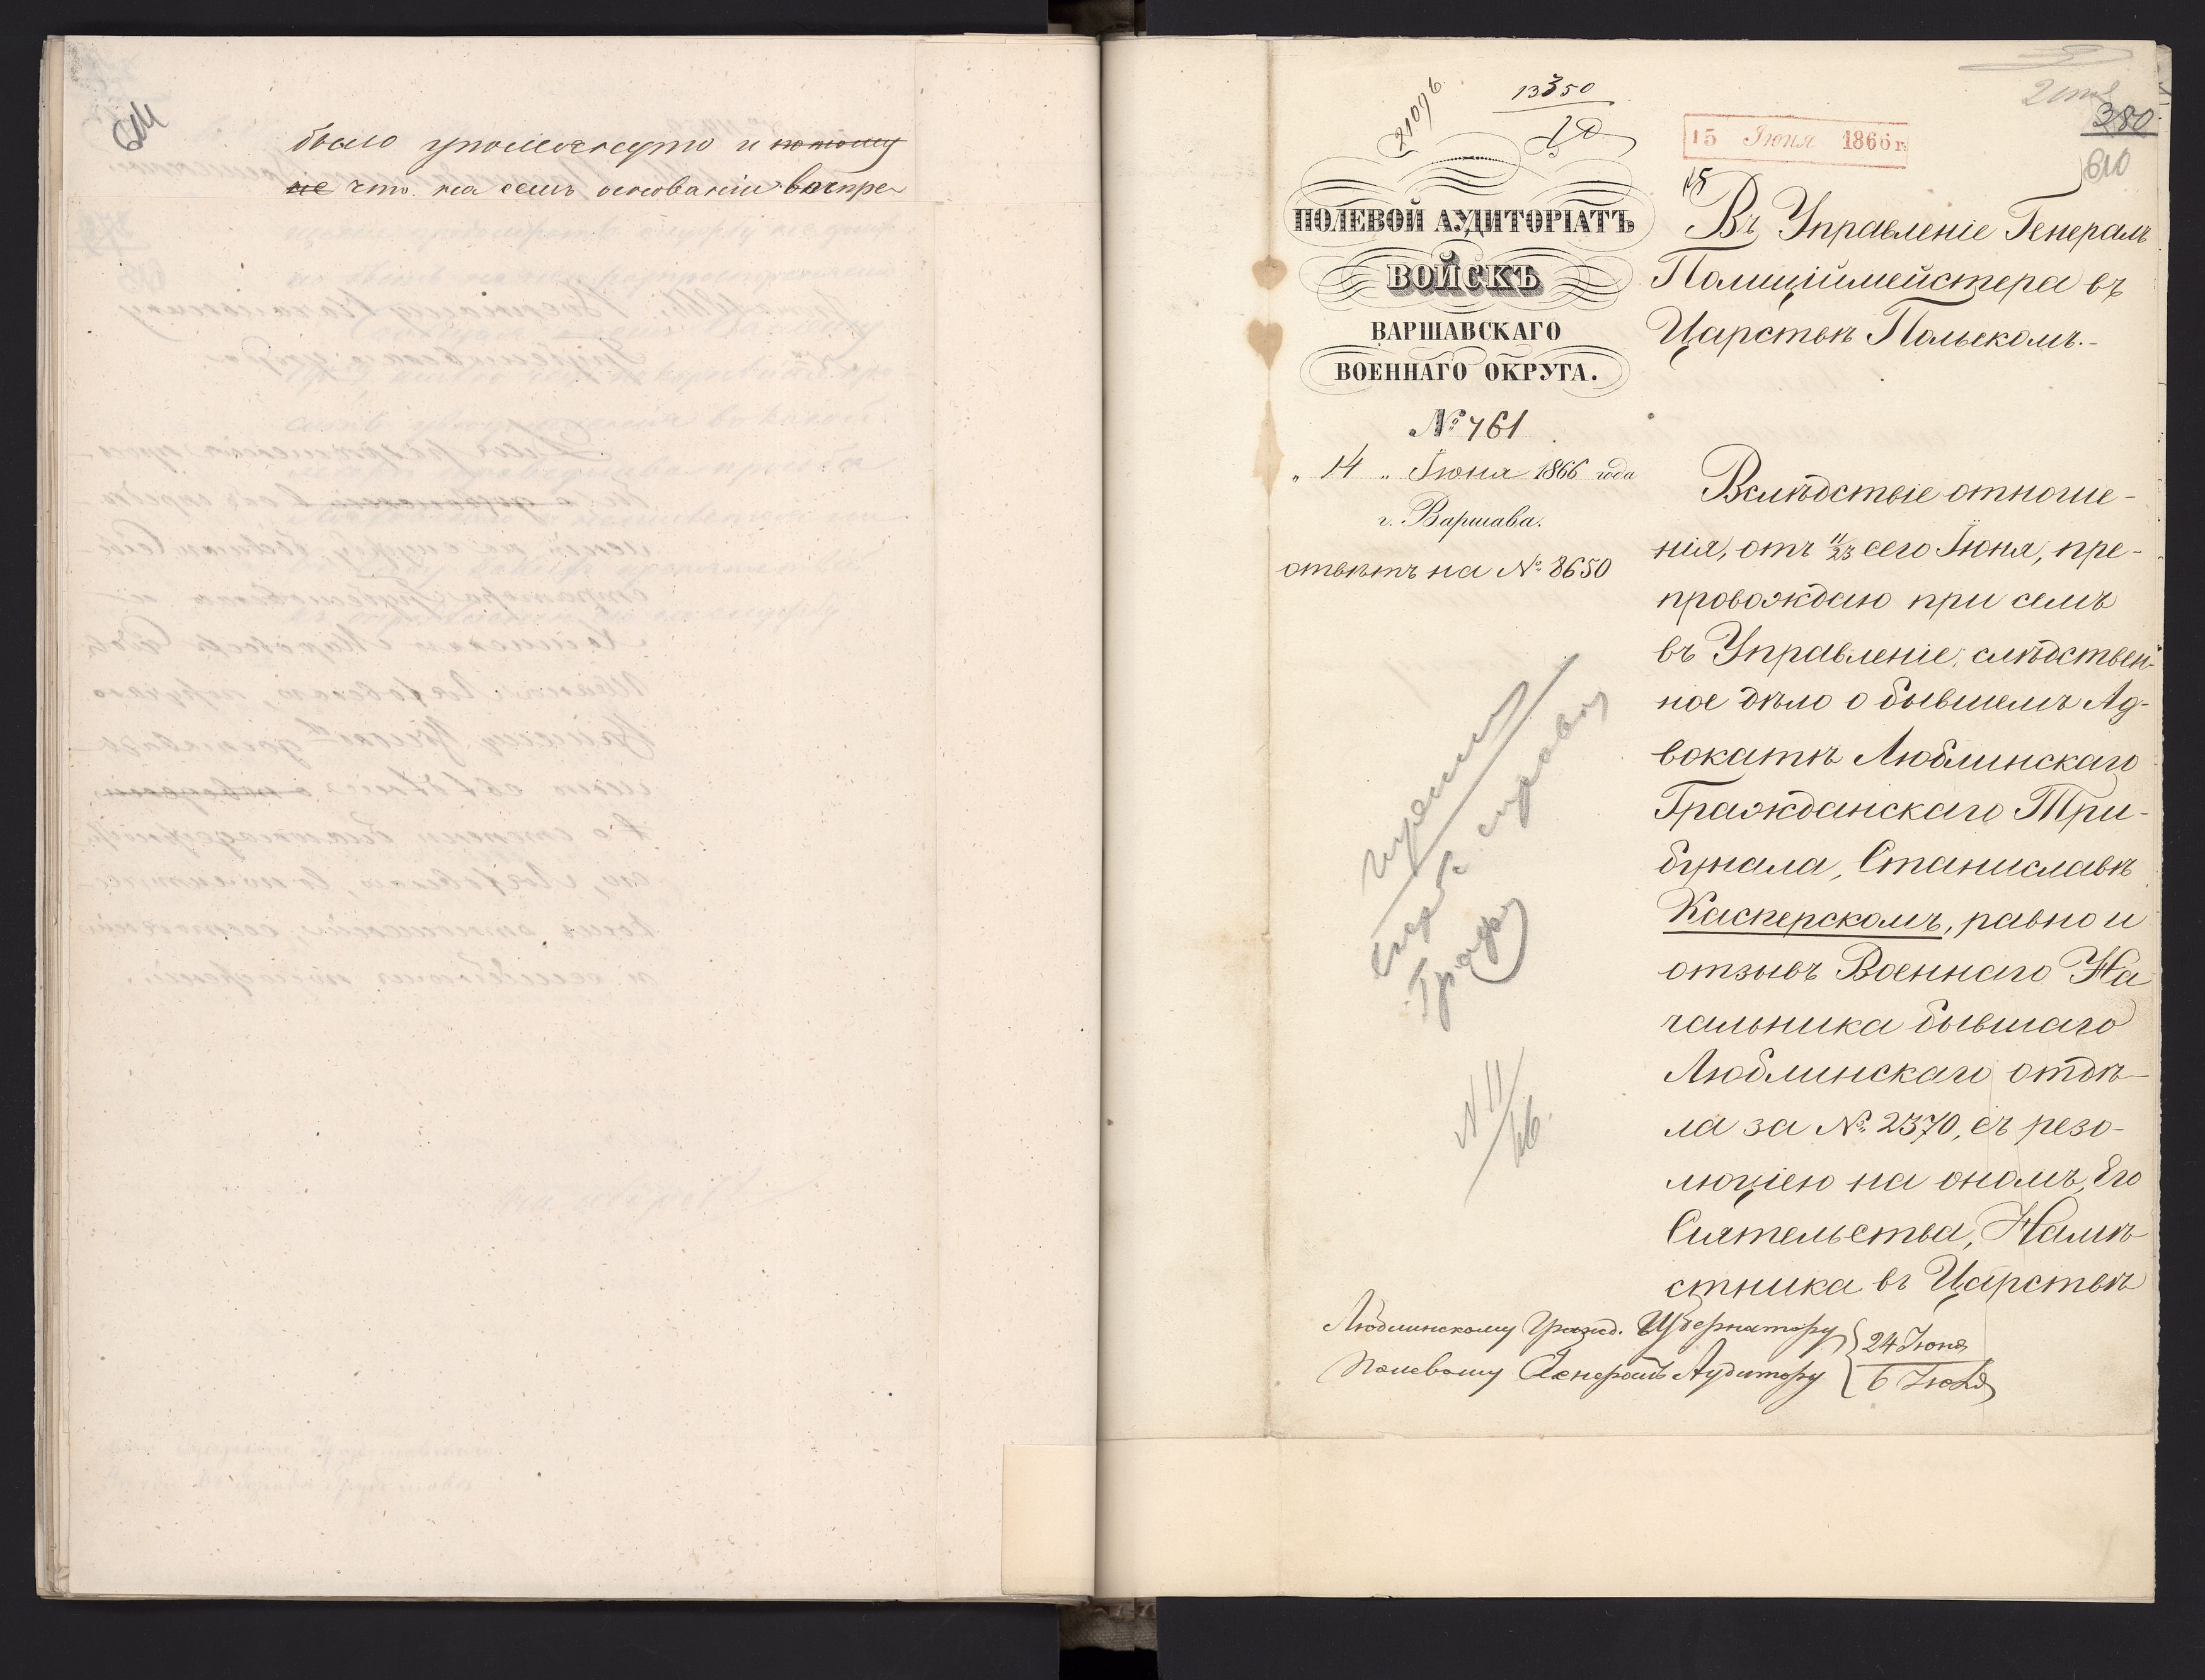 было упомянуто и потому
не что на семъ основаніи воспре-
21096
13350
15 Іюня 1866 г.
380
610
ПОЛЕВОЙ АУДИТОРІАТЪ
ВОЙСКЪ
ВАРШАВСКАГО
ВОЕННАГО ОКРУГА.
№ 761
„ 14 „ Іюня 1866 года
г. Варшава.
отвѣтъ на № 8650
Въ Управленіе Генералъ
Полиціймейстера въ
Царствѣ Польскомъ.-
Вслѣдствіе отноше-
нія, отъ 11/23 сего Іюня, пре-
провождаю при семъ
въ Управленіе, слѣдствен-
ное дѣло о бывшемъ Ад-
вокатѣ Люблинскаго
Гражданскаго Три-
бунала, Станиславѣ
Касперскомъ, равно и
отзывъ Военнаго На
чальника бывшаго
Люблинскаго отдѣ-
ла за № 2370, съ резо-
люціею на ономъ, Его
Сіятельства, Намѣ
стника въ Царствѣ
Люблинскому Гражд. Губернатору
Полевому Генералъ Аудитору
24 Іюня
6 Іюля